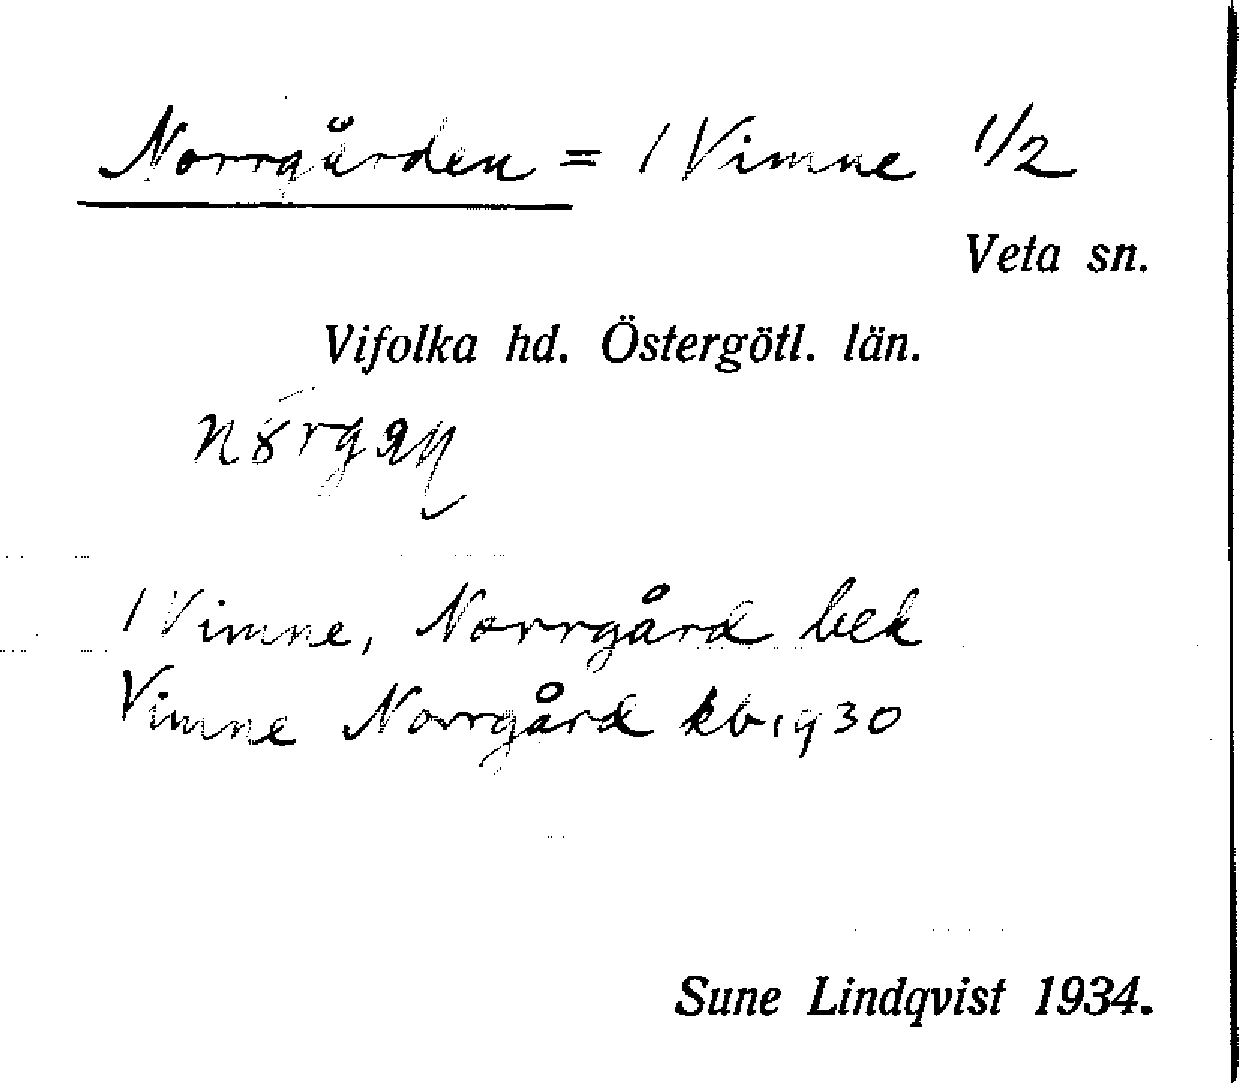 Norrgården = 1 Vimne 1/2
Veta sn.
Vifolka hd. Östergötl. län.
1 Vimne, Norrgård bek
Vimne Norrgård kb 1930
Sune Lindqvist 1934.